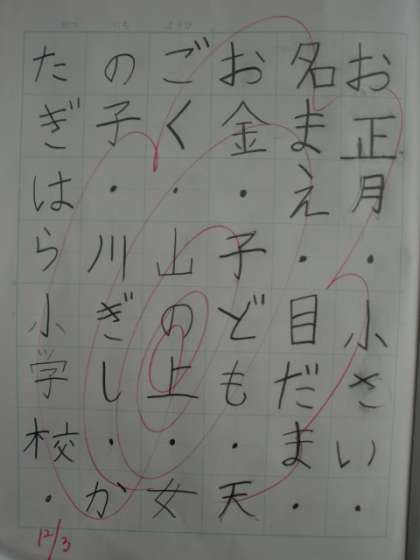 お正月・小さい・
名まえ・目だま・
お金・子ども・天
ごく・山の上・女
の子・川ぎし・か
たぎはら小学校・
12/3